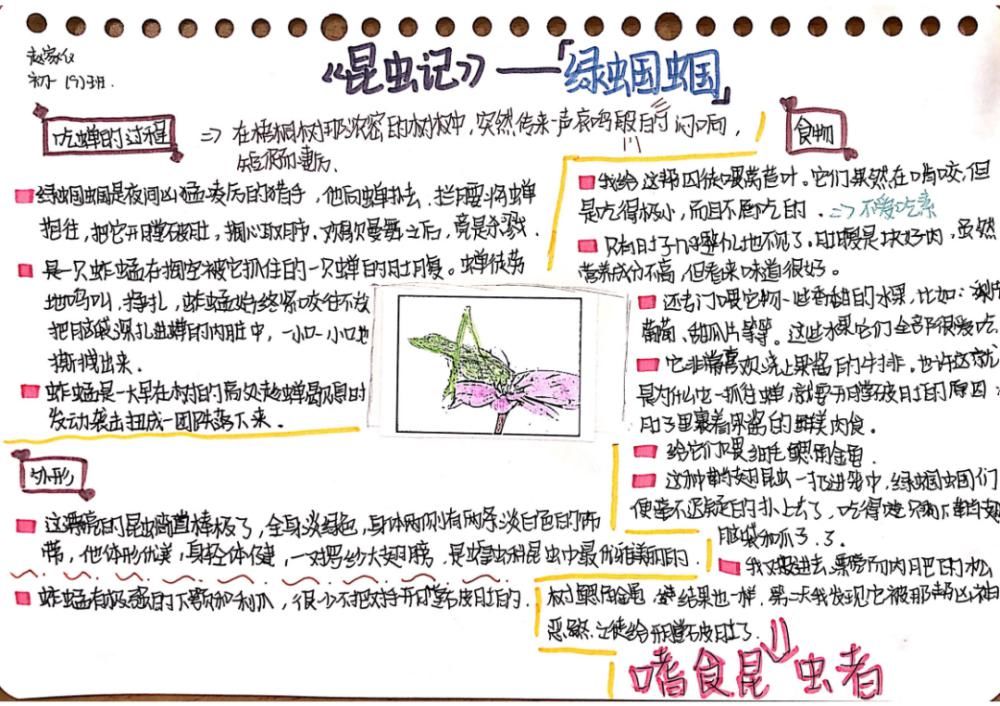 赵家仪
初一(9)班.
《昆虫记》——「绿蝈蝈」
吃蝉的过程
=> 在梧桐树那浓密的树枝中,突然传来一声哀鸣般的闷响,
短促而凄厉.
绿蝈蝈是夜间凶猛凌厉的猎手,他向蝉扑去,拦腰将蝉
抱住,把它开膛破肚,掏心取肺.欢喝曼舞之后,竟是杀戮.
是一只蚱蜢在掏空被它抓住的一只蝉的肚腹。蝉徒劳
地鸣叫,挣扎,蚱蜢始终紧咬住不放
把脑袋深扎进蝉的内脏中,一小口一小口地
撕拽出来.
蚱蜢是一大早在树的高处趁蝉歇息时
发动袭击扭成一团跌落下来.
外形
这漂亮的昆虫简直棒极了,全身淡绿色,身体两侧有两条淡白色的饰
带,他体形优美,身轻体健,一对罗纱大翅膀,是蝗虫科昆虫中最优雅美丽的.
蚱蜢有极强的下颚和利爪,很少不把对手开膛破肚的.
食物
我给这帮囚徒喂莴苣叶.它们果然在啃咬,但
是吃得极小,而且不屑吃的. => 不爱吃素
只有肚子几乎整个地不见了.肚腹是块好肉,虽然
营养成分不高,但看来味道很好。
还专门喂它吃一些香甜的水果,比如:梨片
葡萄、甜瓜片等等。这些水果它们全部很爱吃.
它非常喜欢浇上果酱的牛排.也许这就
是为什么它一抓住蝉,就要开膛破肚的原因:
肚子里裹着果酱的鲜美肉食。
给它们喂细毛鳃角金龟.
这种带翅昆虫一扔进笼中,绿蝈蝈们
便毫不迟疑的扑上去了,吃得它只剩下鞘翅
脑袋和爪子了.
我又喂进去漂亮而肉肥的松
树鳃角金龟,结果也一样,第二天我发现它被那帮凶神
恶煞之徒给开膛破肚了.
嗜食昆虫者